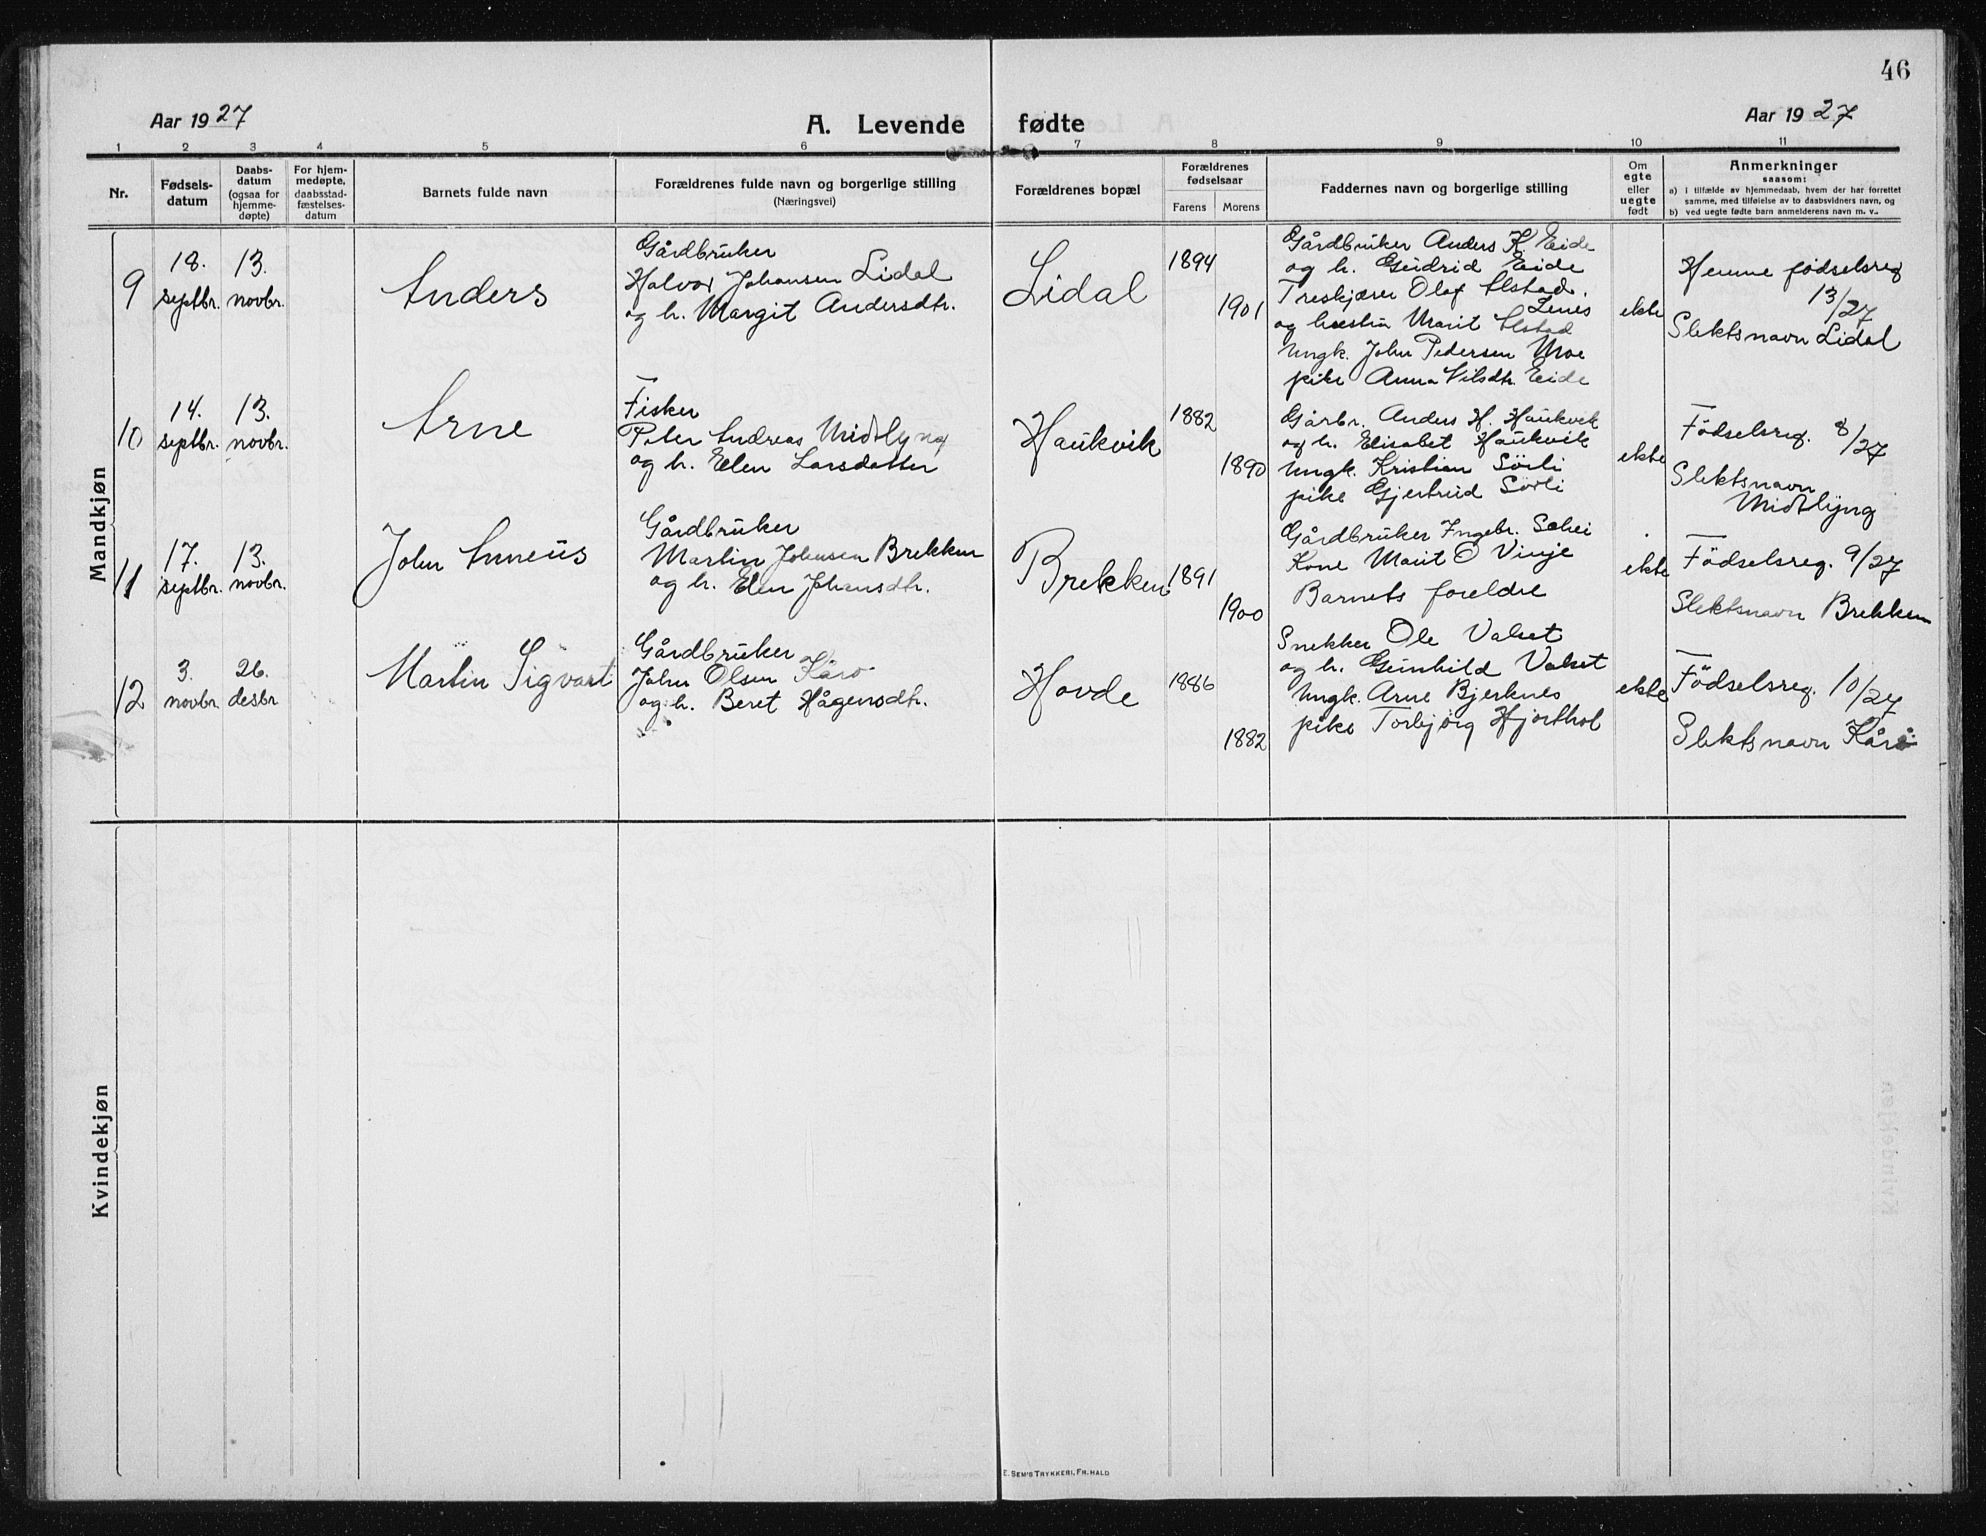 46
Aar 1927
A. Levende fødte
Aar 1927
1 2 3 4 5 6 7 8 9 10 11
Nr.
Fødsels-
datum
Daabs-
datum
(ogsaa for
hjemme-
døpte)
For hjem-
medøpte,
daabsstad-
fæstelses-
datum
Barnets fulde navn
Forældrenes fulde navn og borgerlige stilling
(Næringsvei)
Forældrenes bopæl
Forældrenes
fødselsaar
Farens Morens
Faddernes navn og borgerlige stilling
Om
egte
eller
uegte
født
Anmerkninger
saasom:
a) i tilfælde av hjemmedaab, hvem der har forrettet
samme, med tilføielse av to daabsvidners navn, og
b) ved uegte fødte barn anmelderens navn m. v..
Mandkjøn
9
18.
septbr.
13.
novbr.
Anders
Gårdbruker
Halvor Johansen Lidal
og h. Margit Andersdtr.
Lidal
1894
1901
Gårdbruker Anders K. Eide
og h. Gudrid Eide
Treskjærer Olaf Alstad,
Lenes
og hustru Marit Alstad
Ungk. John Pedersen Moe
pike Anna Nilsdtr. Eide
ekte
Hemne fødselsreg
13/27
Slektsnavn Lidal
10
14.
septbr.
13.
novbr.
Arne
Fisker
Peter Andreas Midtlyng
og h. Elen Larsdatter
Haukvik
1882
1890
Gårbr. Anders H. Haukvik
og h. Elisabet Haukvik
Ungk. Kristian Sörli
pike Gjertrud Sörli
ekte
Födselsreg. 8/27
Slektsnavn
Midtlyng
11
17.
septbr.
13.
novbr.
John Anneus
Gårdbruker
Martin Johnsen Brekken
og h. Elen Johansdtr.
Brekken
1891
1900
Gårdbruker Ingebr. Solvei
Kone Marit O Vinje
Barnets foreldre
ekte
Födselsreg. 9/27
Slektsnavn Brekken
12
3.
novbr.
26.
desbr
Martin Sigvart
Gårdbruker
John Olsen Kårö
og h. Beret Hågensdtr.
Hovde
1886
1882
Snekker Ole Valset
og h. Gunhild Valset
Ungk. Arne Bjerknes
pike Torbjörg Hjorthol
ekte
Födselsreg. 10/27
Slektsnavn Kårö
Kvindekjøn
E. SEM'S TRYKKERI, FR.HALD